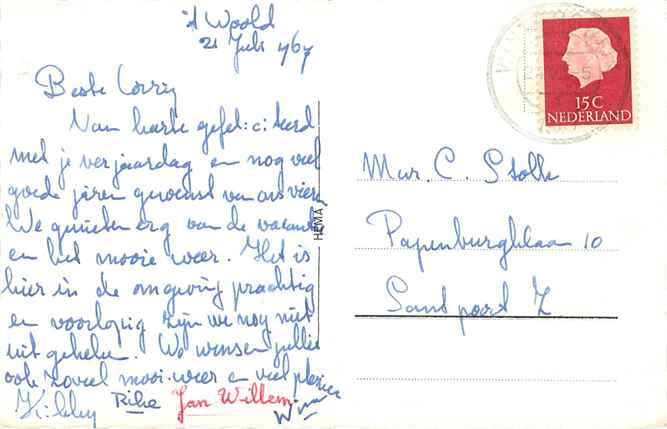 't Woold
21 Juli 1967
Beste Corry
Van harte gefeliciteerd
met je verjaardag en nog veel
goede jaren gewenst van ons vieren
We genieten erg van de vacantie
en het mooie weer. Het is
hier in de omgeving prachtig
en voorlopig zijn we nog niet
uit gekeken. We wensen jullie
ook zoveel mooi weer en veel plezier
Rike Jan Willem
HEMA
15C
NEDERLAND
Mevr. C. Stolk
Papenburghlaan 10
Santpoort Z